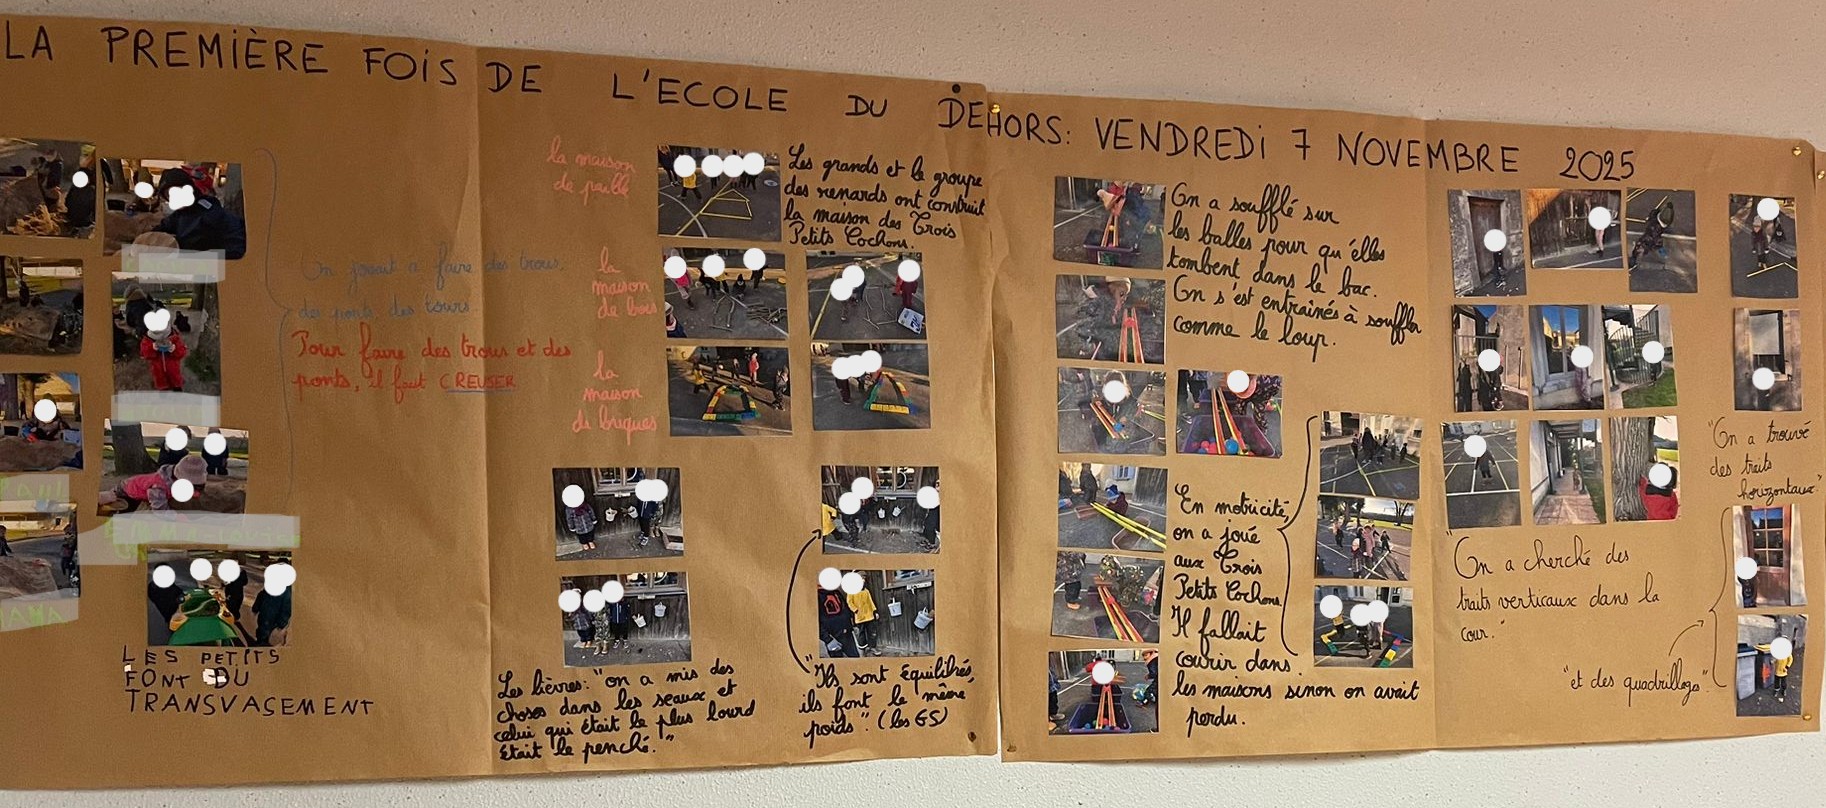 LA PREMIÈRE FOIS DE L'ECOLE DU DEHORS: VENDREDI 7 NOVEMBRE 2025
On jouait à faire des trous,
des ponts, des tours.
Pour faire des trous et des
ponts, il faut CREUSER
LES PETITS
FONT DU
TRANSVASEMENT
la maison
de paille
la
maison
de bois
la
maison
de briques
Les grands et le groupe
des renards ont construit
la maison des Trois
Petits Cochons.
Les lièvres: "on a mis des
choses dans les seaux et
celui qui était le plus lourd
était le penché."
"Ils sont équilibrés,
ils font le même
poids". (les GS)
On a soufflé sur
les balles pour qu'elles
tombent dans le bac.
On s'est entrainés à souffler
comme le loup.
En motricité,
on a joué
aux Trois
Petits Cochons.
Il fallait
courir dans
les maisons sinon on avait
perdu.
"On a cherché des
traits verticaux dans la
cour."
"On a trouvé
des traits
horizontaux."
"et des quadrillages".